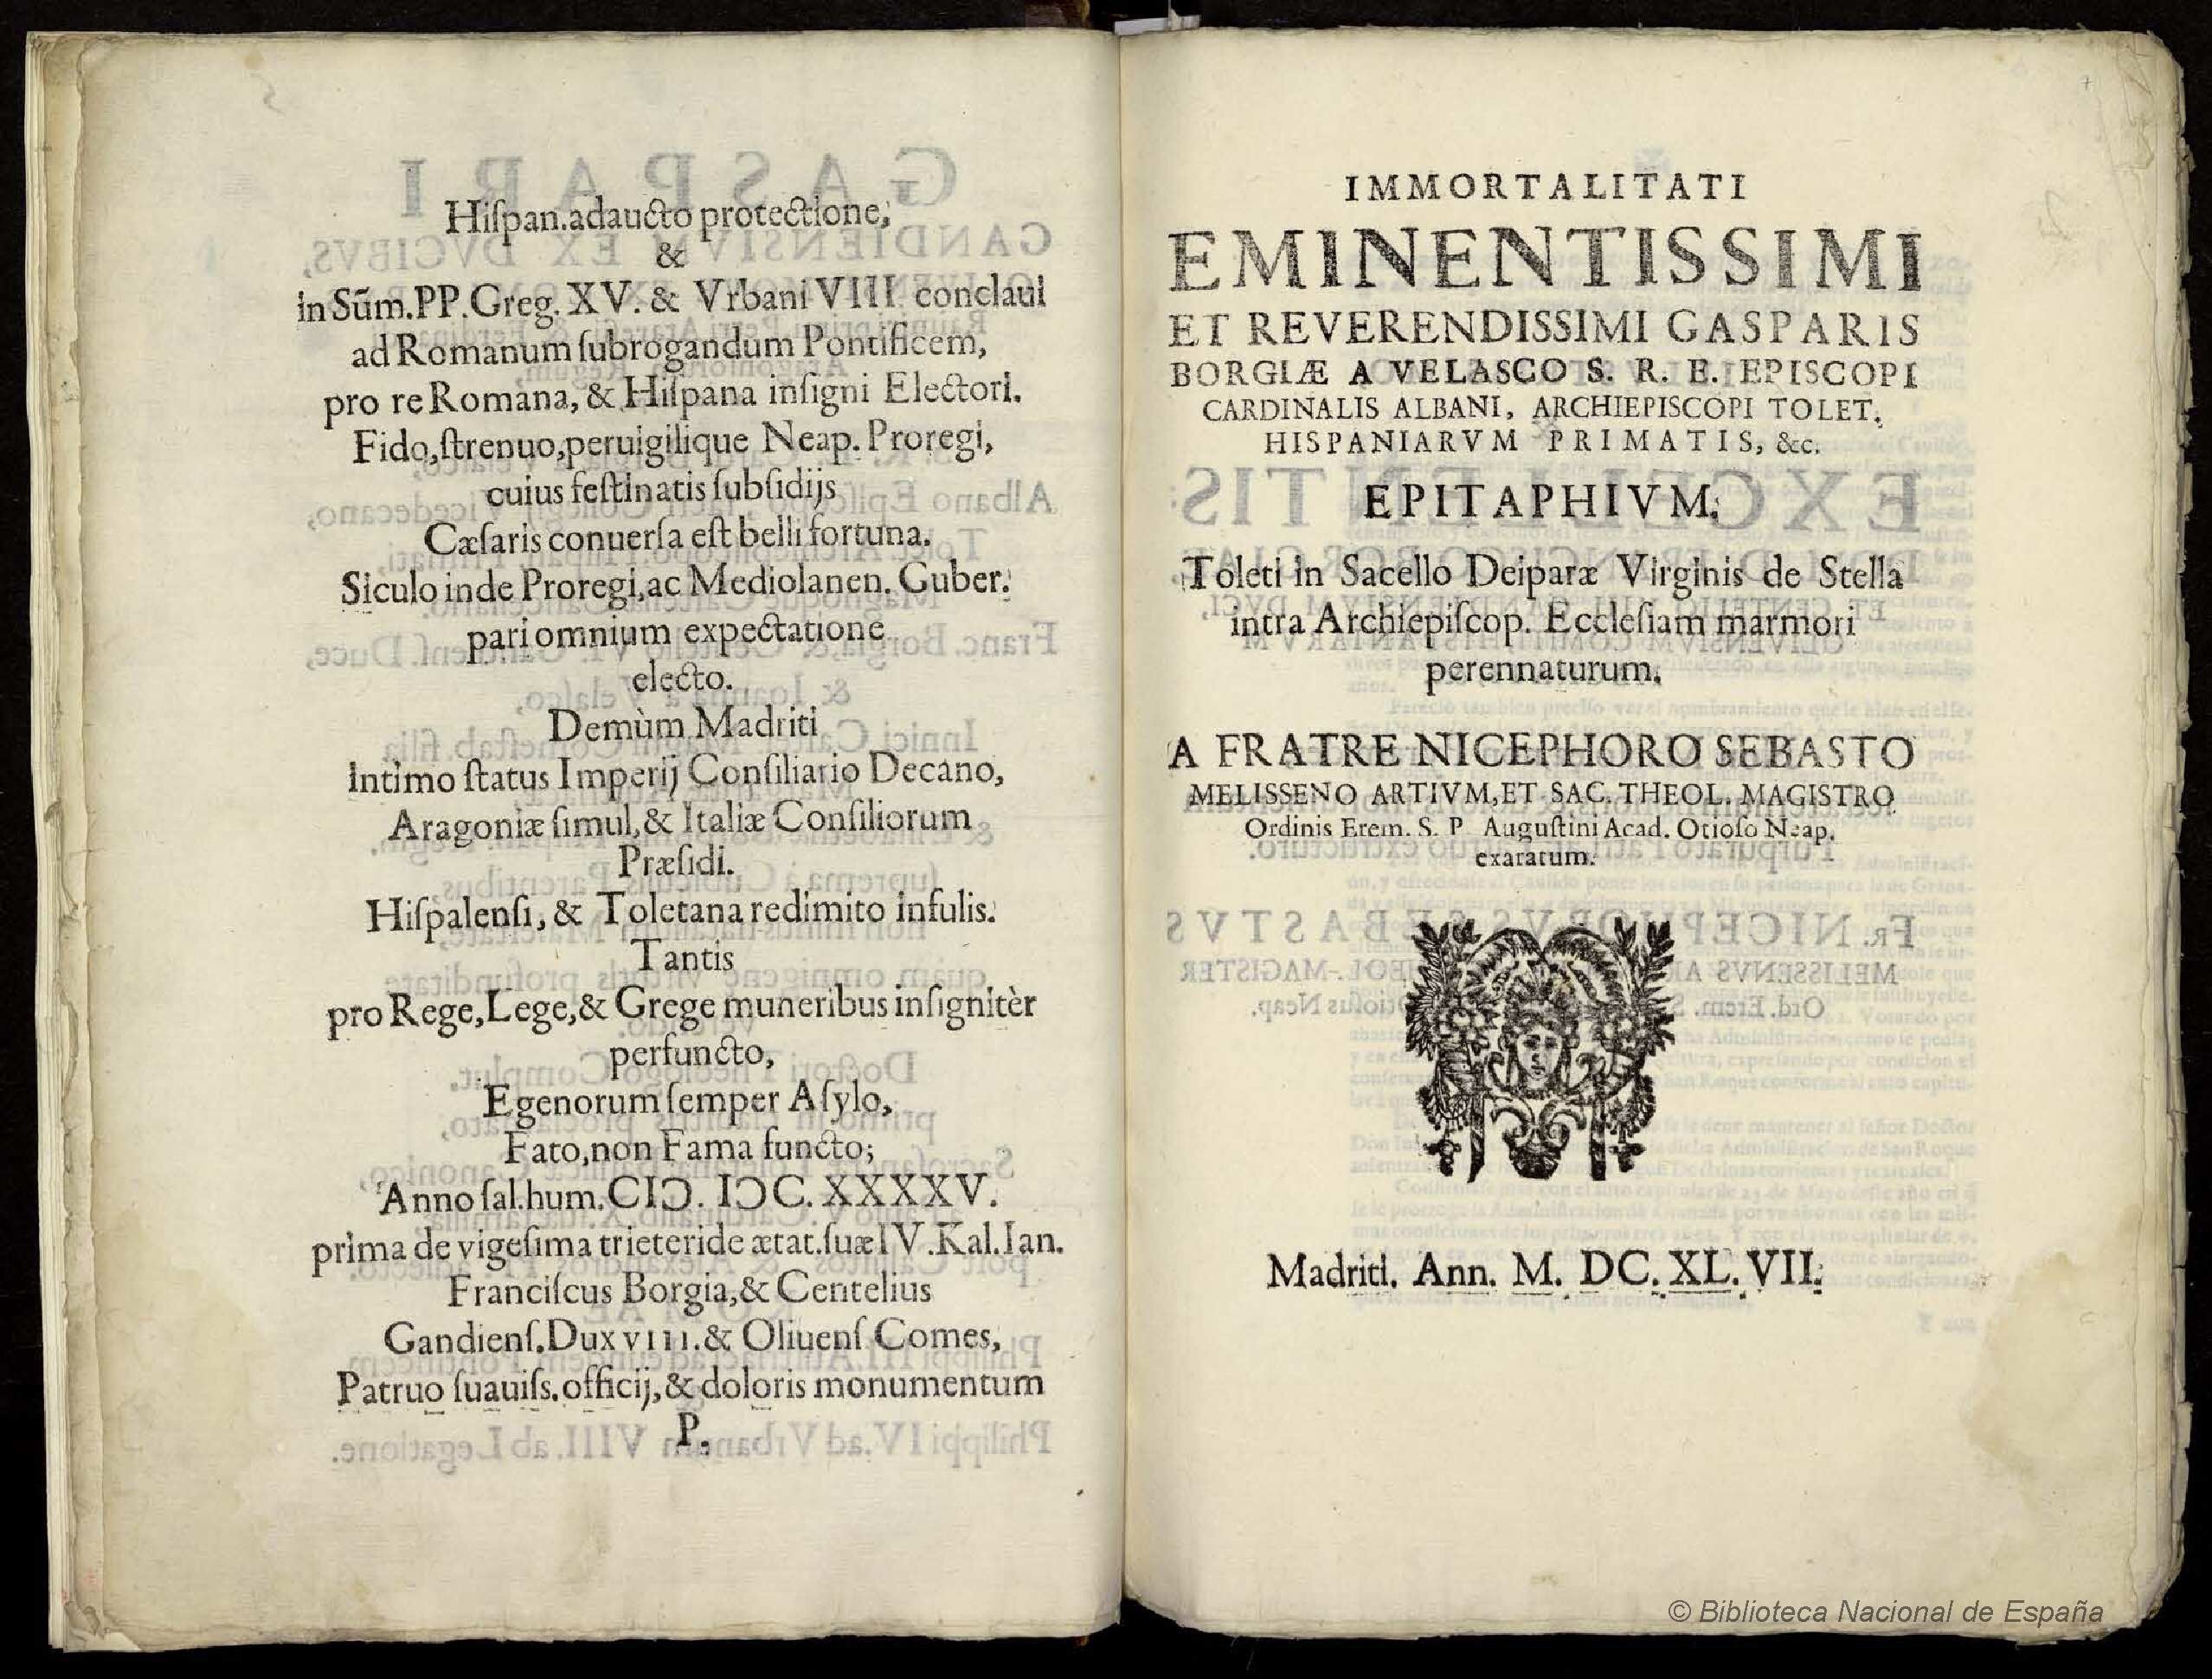 Hiſpan.adaucto protectione,
&
in Sūm.PP.Greg. XV. & Vrbani VIII. conclaui
ad Romanum ſubrogandum Pontificem,
pro re Romana, & Hiſpana inſigni Electori.
Fido,ſtrenuo,peruigilique Neap. Proregi,
cuius feſtinatis ſubſidijs
Cæſaris conuerſa eſt belli fortuna.
Siculo inde Proregi,ac Mediolanen. Guber.
pari omnium expectatione
electo.
Demùm Madriti
intimo ſtatus Imperij Conſiliario Decano,
Aragoniæ ſimul,& Italiæ Conſiliorum
Præſidi.
Hiſpalenſi, & Toletana redimito infulis.
Tantis
pro Rege,Lege,& Grege muneribus inſignitèr
perfuncto,
Egenorum ſemper Aſylo,
Fato,non Fama functo;
Anno ſal.hum.CIↃ. IↃC. XXXXV.
prima de vigeſima trieteride ætat.ſuæ IV.Kal.Ian.
Franciſcus Borgia,& Centelius
Gandienſ.Dux VIII.& Oliuenſ Comes,
Patruo ſuauiſs.officij,& doloris monumentum
P.
IMMORTALITATI
EMINENTISSIMI
ET REVERENDISSIMI GASPARIS
BORGIÆ A VELASCO S. R. E. EPISCOPI
CARDINALIS ALBANI, ARCHIEPISCOPI TOLET.
HISPANIARVM PRIMATIS, &c.
EPITAPHIVM.
Toleti in Sacello Deiparæ Virginis de Stella
intra Archiepiſcop. Eccleſiam marmori
perennaturum.
A FRATRE NICEPHORO SEBASTO
MELISSENO ARTIVM,ET SAC. THEOL. MAGISTRO
Ordinis Erem. S. P Auguſtini Acad. Otioſo Neap.
exaratum.
Madriti. Ann. M. DC. XL. VII.
© Biblioteca Nacional de España